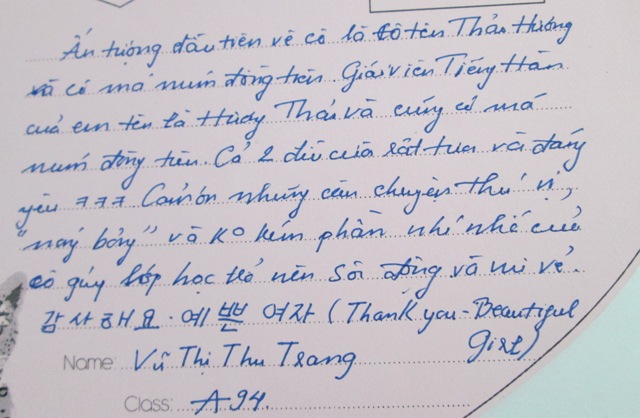 Ấn tượng đầu tiên về cô là cô tên Thảo Hương
và có má núm đồng tiền. Giáo viên Tiếng Hàn
của em tên là Thảo và cũng có má
núm đồng tiền. Cả 2 đều cười rất tươi và đáng
yêu ㅋㅋㅋ Cảm ơn những câu chuyện thú vị,
"nảy bỏng" và ko kém phần nhí nhố của
cô giúp lớp học trở nên sôi động và vui vẻ.
감사해요. 예쁜 여자 (Thank you - Beautiful
Girl)
Name: Vũ Thị Thu Trang
Class: A94.